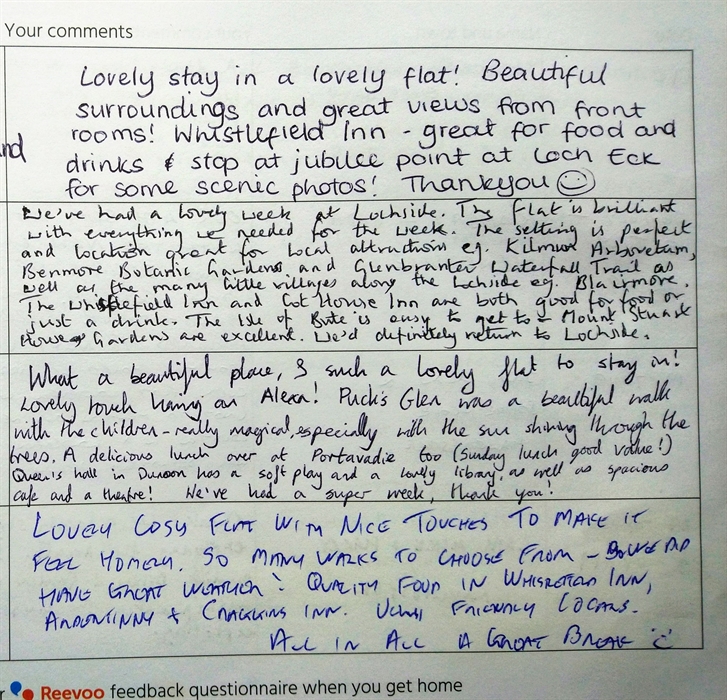 Your comments
Lovely stay in a lovely flat! Beautiful
surroundings and great views from front
rooms! Whistlefield Inn - great for food and
nd
drinks & stop at jubilee point at Loch Eck
for some scenic photos! Thankyou ☺
We've had a lovely week at Lochside. The flat is brilliant
with everything we needed for the week. The setting is perfect
and location great for local attractions eg. Kilmun Arboretum,
Benmore Botanic Gardens and Glenbranter Waterfall Trail as
well as the many little villages along the Lochside eg. Blairmore.
The Whistlefield Inn and Cot House Inn are both good for food or
just a drink. The Isle of Bute is easy to get to - Mount Stuart
House & Gardens are excellent. We'd definitely return to Lochside.
What a beautiful place, & such a lovely flat to stay in!
Lovely touch having an Alexa! Puck's Glen was a beautiful walk
with the children - really magical, especially with the sun shining through the
trees. A delicious lunch over at Portavadie too (Sunday lunch good value!)
Queen's hall in Dunoon has a soft play and a lovely library, as well as spacious
cafe and a theatre! We've had a super week, thank you!
Lovely Cosy Flat With Nice Touches To Make it
Feel Homely. So Many Walks To Choose From - We Did
Have Great Weather! Quality Food in Inn,
Ardentinny & Inn. Friendly Locals.
All in All A Great Break
Reevoo feedback questionnaire when you get home